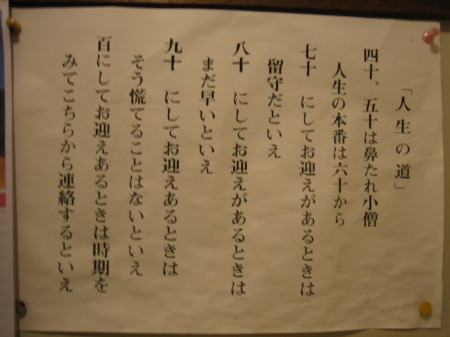 「人生の道」
四十、五十は鼻たれ小僧
人生の本番は六十から
七十　にしてお迎えがあるときは
留守だといえ
八十　にしてお迎えがあるときは
まだ早いといえ
九十　にしてお迎えあるときは
そう慌てることはないといえ
百にしてお迎えあるときは時期を
みてこちらから連絡するといえ